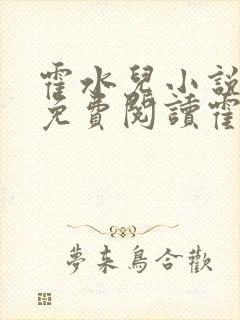 霍水兒小說
免費閱讀霍
夢來鳥合歡